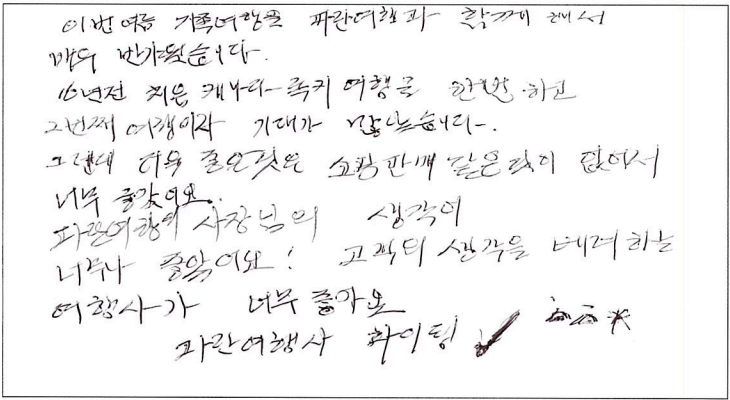 이번 여름 가족여행을 파란여행과 함께 해서
매우 반가웠습니다.
10년전 처음 캐나다-록키 여행을 한번 하고
2번째 여행이라 기대가 많았습니다.
그런데 더욱 좋은것은 쇼핑판매 같은것이 없어서
너무 좋았어요.
파란여행 사장님의 생각이
너무나 좋았어요! 고객의 생각을 배려하는
여행사가 너무 좋아요
파란여행사 화이팅